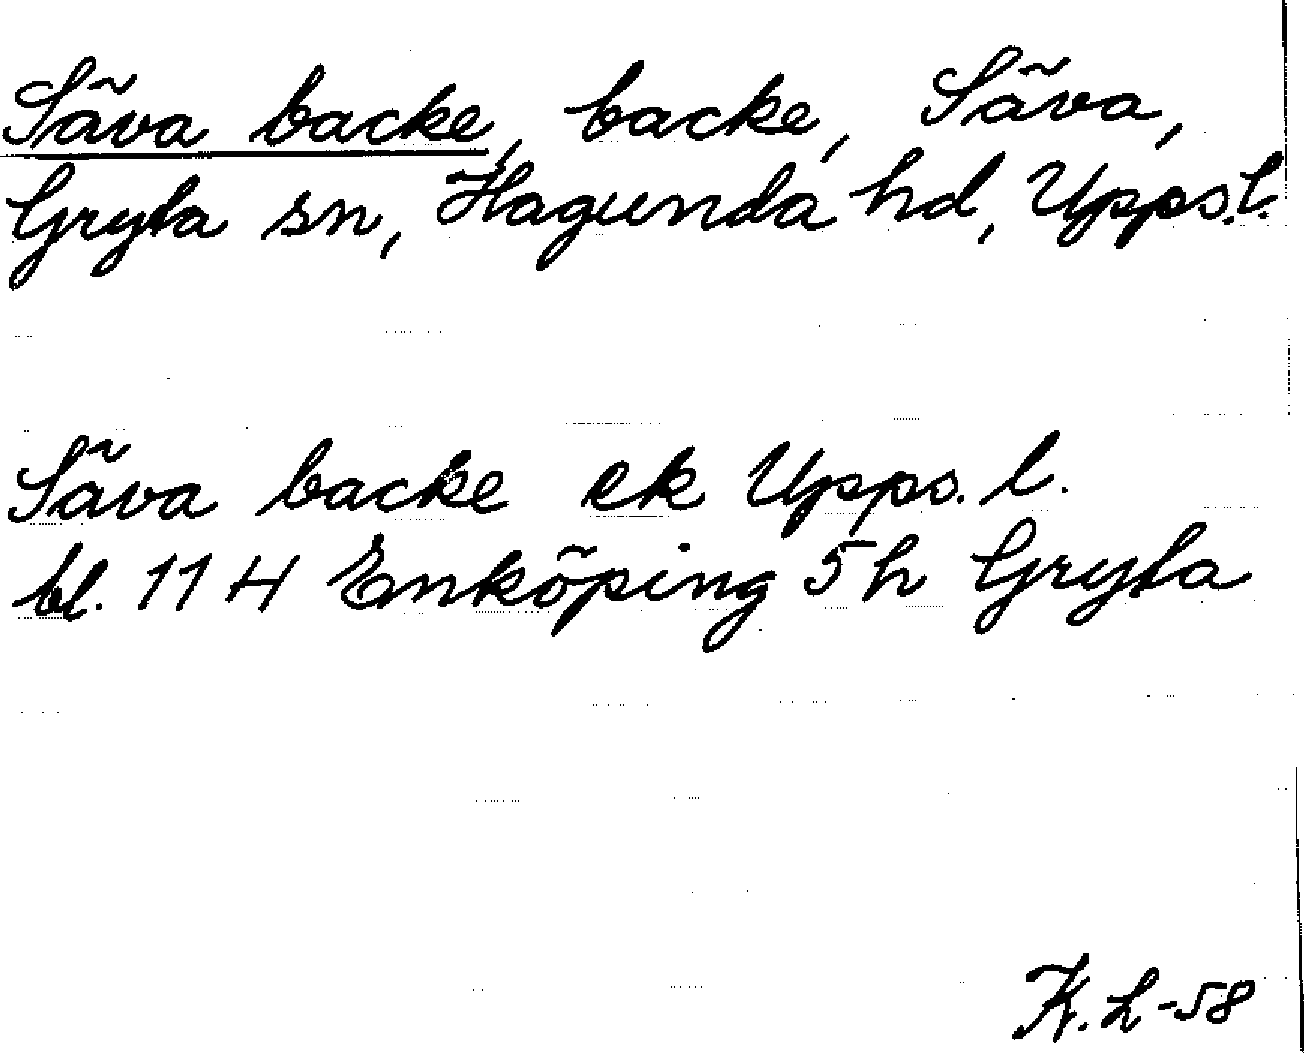 Säva backe, backe, Säva,
Gryta sn, Hagunda hd, Upps.l.
Säva backe ek Upps. l.
bl. 11 H Enköping 5 h Gryta
K.L-58